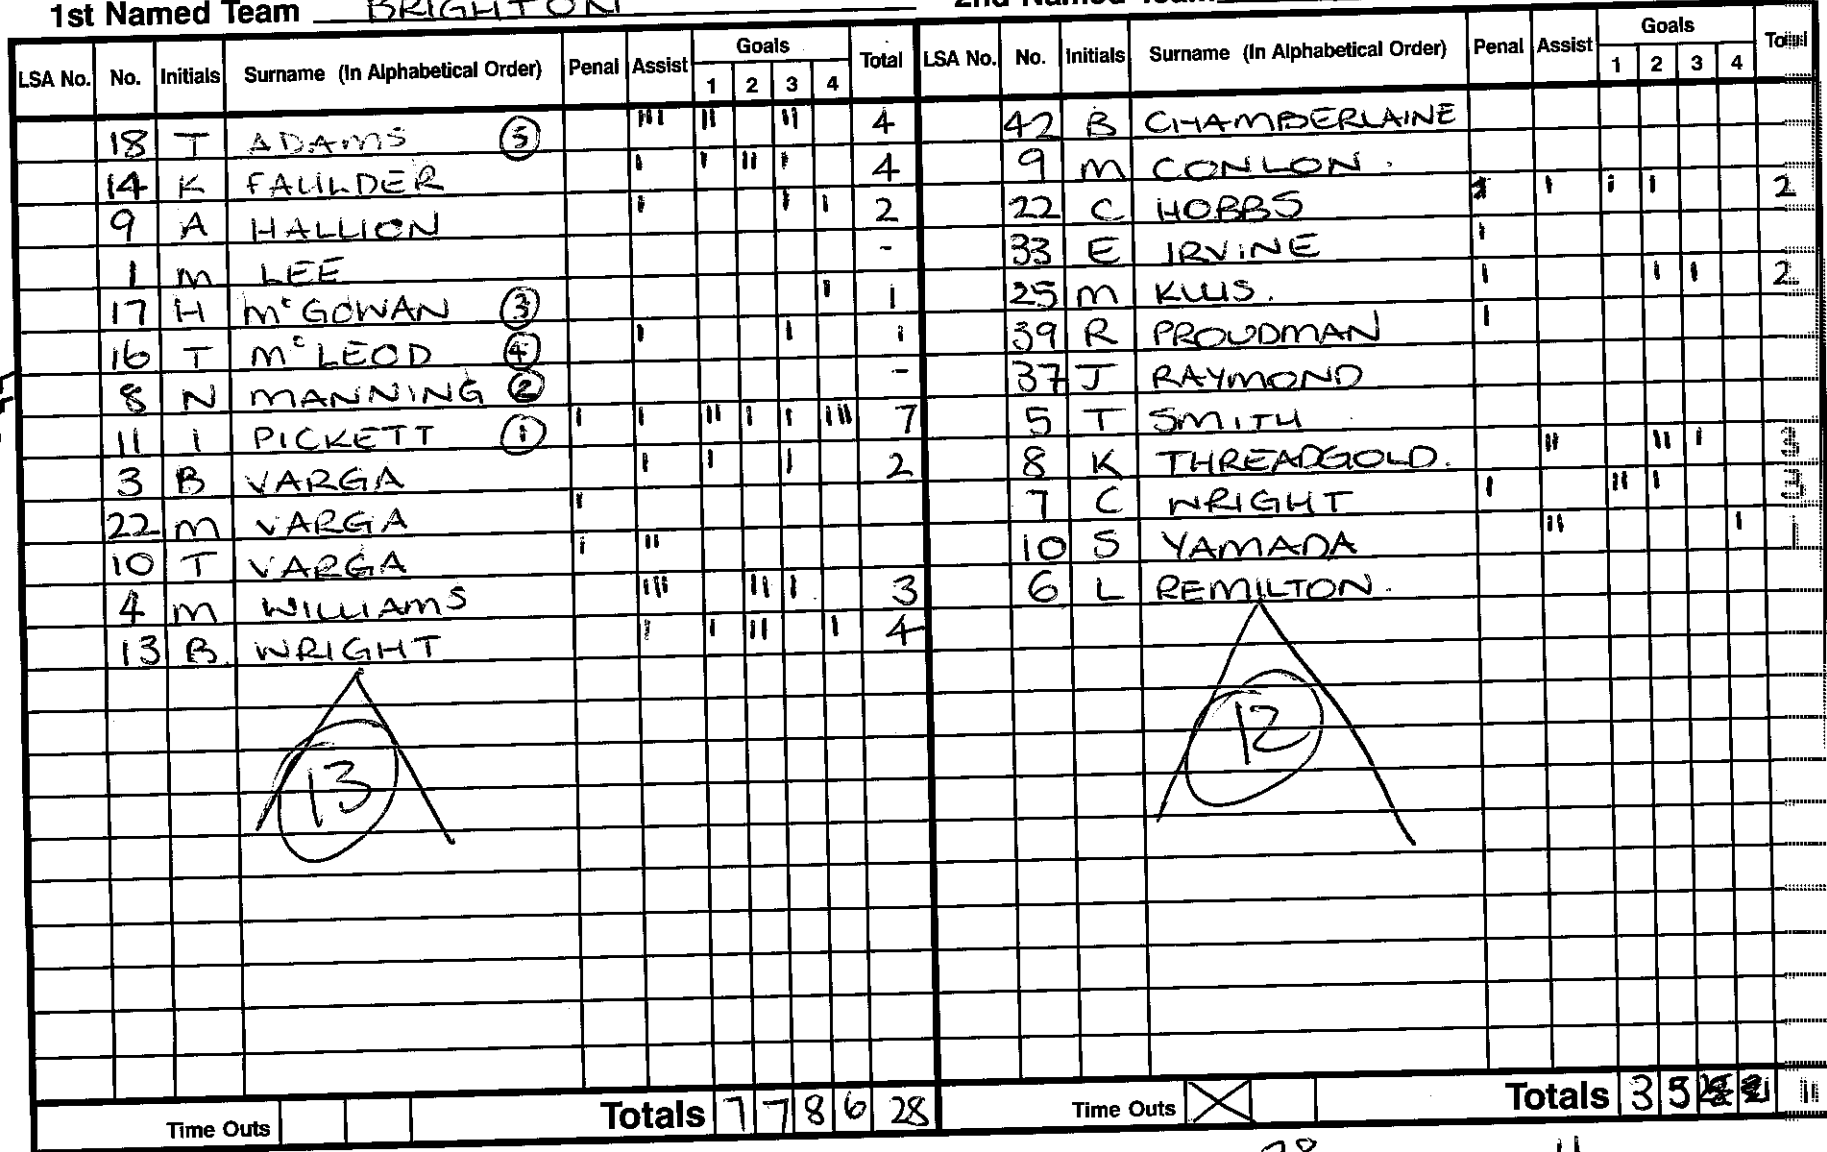 1st Named Team BRIGHTON
LSA No. No. Initials Surname (In Alphabetical Order) Penal Assist Goals 1 2 3 4 Total
18 T ADAMS 5 III II II 4
14 K FAULDER I I II I 4
9 A HALLION I I I 2
1 M LEE -
17 H McGOWAN 3 I 1
16 T McLEOD 4 I I 1
8 N MANNING 2 -
11 I PICKETT 1 I I II I I III 7
3 B VARGA I I I 2
22 M VARGA I
10 T VARGA I II
4 M WILLIAMS III II I 3
13 B. WRIGHT I I II I 4
13
Time Outs Totals 7 7 8 6 28
LSA No. No. Initials Surname (In Alphabetical Order) Penal Assist Goals 1 2 3 4 Total
42 B CHAMBERLAINE
9 M CONLON.
22 C HOBBS I I I 2
33 E IRVINE I
25 M KLUS. I I I 2
39 R PROUDMAN I
37 J RAYMOND
5 T SMITH
8 K THREADGOLD. II II I 3
7 C WRIGHT I II I 3
10 S YAMADA II I 1
6 L REMILTON.
12
Time Outs X Totals 3 5 11